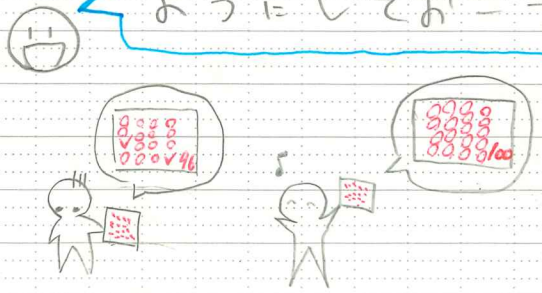 ようにしておー
96
100